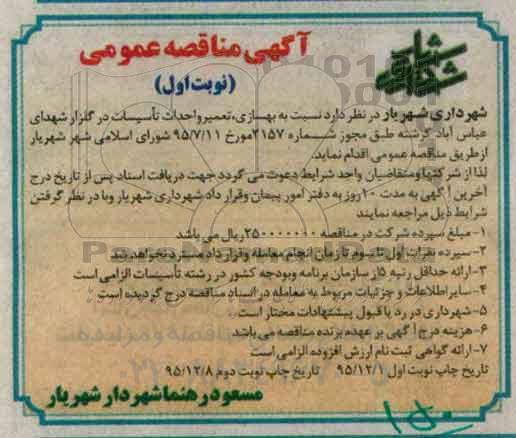 شهرداری شهریار
آگهی مناقصه عمومی
(نوبت اول)
شهرداری شهریار در نظر دارد نسبت به بهسازی،تعمیر واحداث تأسیسات در گلزار شهدای
عباس آباد گرشته طبق مجوز شماره ۲۱۵۷مورخ ۹۵/۷/۱۱ شورای اسلامی شهر شهریار
ازطریق مناقصه عمومی اقدام نماید.
لذا از شرکتها ومتقاضیان واحد شرایط دعوت می گردد جهت دریافت اسناد پس از تاریخ درج
آخرین آگهی به مدت ۱۰روز به دفتر امور پیمان وقرار داد شهرداری شهریار وبا در نظر گرفتن
شرایط ذیل مراجعه نمایند
۱-مبلغ سپرده شرکت در مناقصه ۲۵۰۰۰۰۰۰۰ریال می باشد
۲-سپرده نفرات اول تا سوم تا زمان انجام معامله وقرار داد مسترد نخواهد شد
۳-ارائه حداقل رتبه ۵از سازمان برنامه وبودجه کشور در رشته تأسیسات الزامی است
۴-سایر اطلاعات و جزئیات مربوط به معامله در اسناد مناقصه درج گردیده است
۵-شهرداری در رد یا قبول پیشنهادات مختار است.
۶-هزینه درج آگهی بر عهده برنده مناقصه می باشد
۷-ارائه گواهی ثبت نام ارزش افزوده الزامی است
تاریخ چاپ نوبت اول ۹۵/۱۲/۱ تاریخ چاپ نوبت دوم ۹۵/۱۲/۸
مسعود رهنما شهردار شهریار